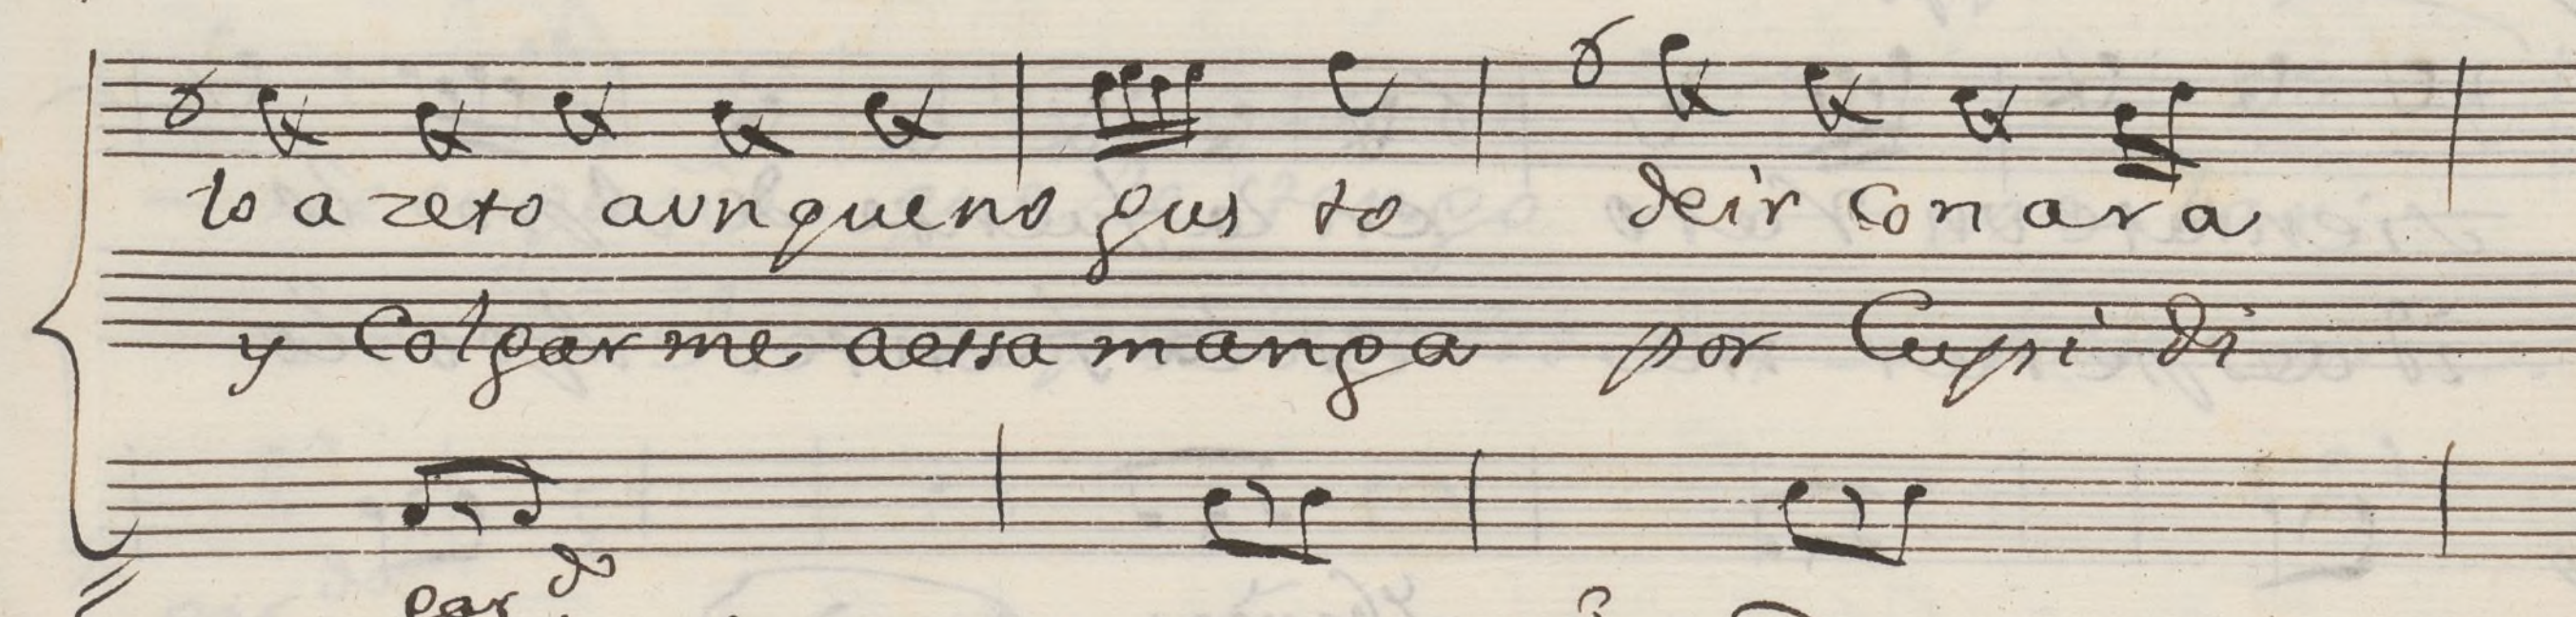 lo a zeto aunqueno gus to deir con ara
y Colgar me aessa manga por Cupi di